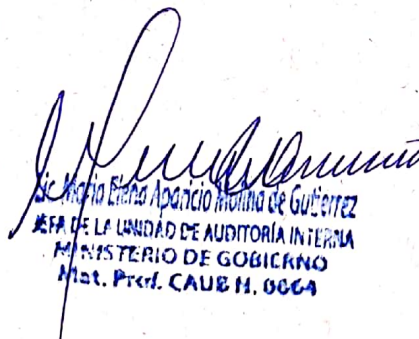 Lic. Maria Elena Aparicio Molina de Gutierrez
JEFA DE LA UNIDAD DE AUDITORÍA INTERNA
MINISTERIO DE GOBIERNO
Mat. Prof. CAUB N. 0664